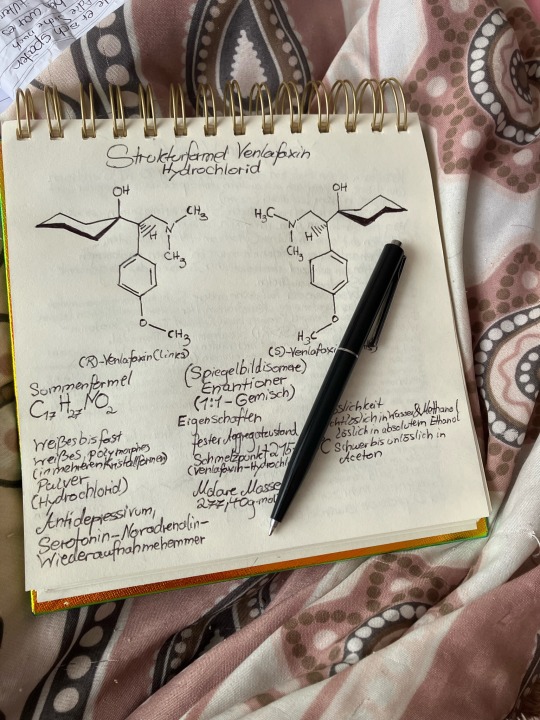 Strukturformel Venlafaxin
Hydrochlorid
OH
CH3
N
H
CH3
O
CH3
(R)-Venlafaxin (Links)
OH
H3C
N
H
CH3
O
H3C
(S)-Venlafaxin
Summenformel
C17 H27 NO2
weißes bis fast
weißes, polymorphes
(in mehreren Kristallformen)
Pulver
(Hydrochlorid)
Antidepressivum,
Serotonin-Noradrenalin-
Wiederaufnahmehemmer
(Spiegelbildisomere)
Enantiomer
(1:1-Gemisch)
Eigenschaften
fester Aggregatzustand
Schmelzpunkt 215
(Venlafaxin-Hydrochl
Molare Masse
277,40 g·mol
slichkeit
chtlöslich in Wasser & Methanol
löslich in absolutem Ethanol
Schwer bis unlöslich in
Aceton